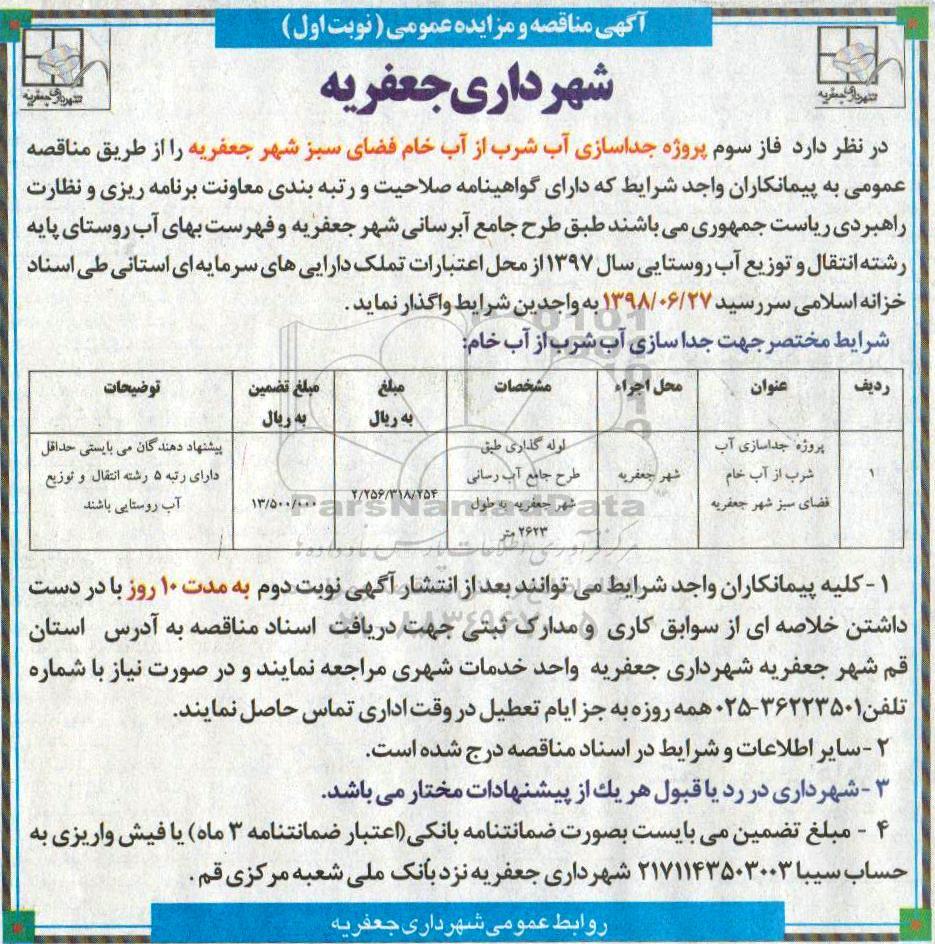 آگهی مناقصه و مزایده عمومی (نوبت اول)
شهرداری جعفریه
شهرداری جعفریه
شهرداری جعفریه
در نظر دارد فاز سوم پروژه جداسازی آب شرب از آب خام فضای سبز شهر جعفریه را از طریق مناقصه
عمومی به پیمانکاران واجد شرایط که دارای گواهینامه صلاحیت و رتبه بندی معاونت برنامه ریزی و نظارت
راهبردی ریاست جمهوری می باشند طبق طرح جامع آبرسانی شهر جعفریه و فهرست بهای آب روستای پایه
رشته انتقال و توزیع آب روستایی سال ۱۳۹۷ از محل اعتبارات تملک دارایی های سرمایه ای استانی طی اسناد
خزانه اسلامی سررسید ۱۳۹۸/۰۶/۲۷ به واجدین شرایط واگذار نماید.
شرایط مختصر جهت جدا سازی آب شرب از آب خام:
ردیف عنوان محل اجراء مشخصات مبلغ به ریال مبلغ تضمین به ریال توضیحات
۱ پروژه جداسازی آب شرب از آب خام فضای سبز شهر جعفریه شهر جعفریه لوله گذاری طبق طرح جامع آب رسانی شهر جعفریه به طول ۲۶۲۳ متر ۲/۲۵۶/۳۱۸/۲۵۴ ۱۳/۵۰۰/۰۰۰ پیشنهاد دهندگان می بایستی حداقل دارای رتبه ۵ رشته انتقال و توزیع آب روستایی باشند
ParsNamadData
مرکز فرآوری اطلاعات پارس نماد داده ها
۱ - کلیه پیمانکاران واجد شرایط می توانند بعد از انتشار آگهی نوبت دوم به مدت ۱۰ روز با در دست
داشتن خلاصه ای از سوابق کاری و مدارک ثبتی جهت دریافت اسناد مناقصه به آدرس استان
قم شهر جعفریه شهرداری جعفریه واحد خدمات شهری مراجعه نمایند و در صورت نیاز با شماره
تلفن ۳۶۲۲۳۵۰۱-۰۲۵ همه روزه به جز ایام تعطیل در وقت اداری تماس حاصل نمایند.
۲ -سایر اطلاعات و شرایط در اسناد مناقصه درج شده است.
۳ -شهرداری در رد یا قبول هر یك از پیشنهادات مختار می باشد.
۴ - مبلغ تضمین می بایست بصورت ضمانتنامه بانکی(اعتبار ضمانتنامه ۳ ماه) یا فیش واریزی به
حساب سیبا ۲۱۷۱۱۴۳۵۰۳۰۰۳ شهرداری جعفریه نزد بانک ملی شعبه مرکزی قم.
روابط عمومی شهرداری جعفریه